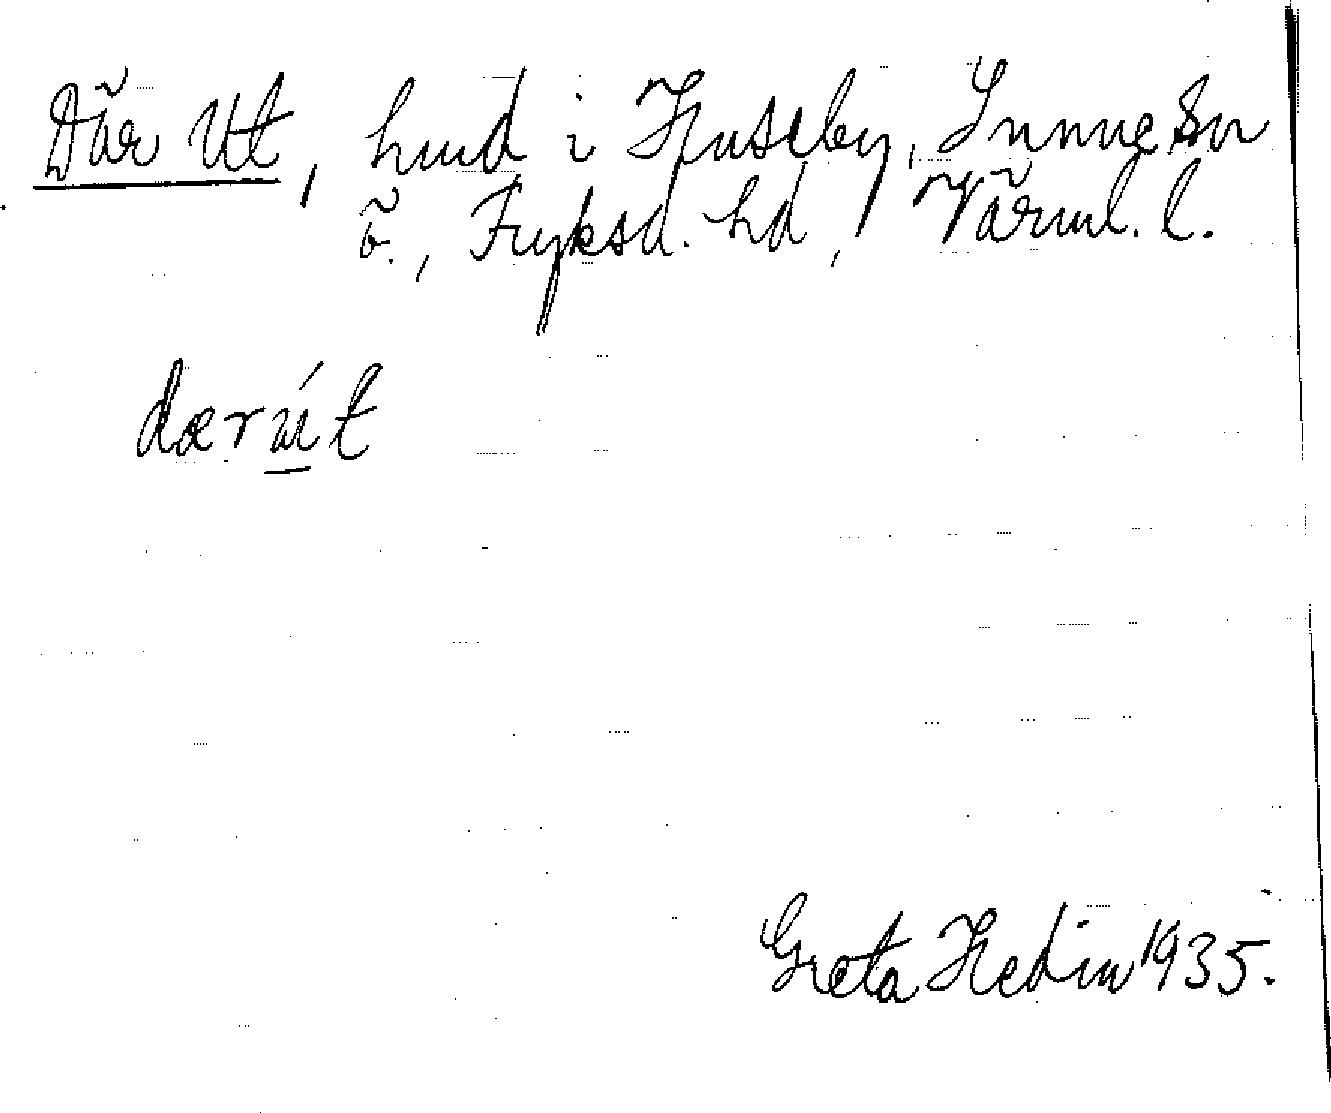 Där Ut, hmd i Huseby, Sunne sn
ö., Fryksd. hd, Värml. l.
dærút
Greta Hedin 1935.